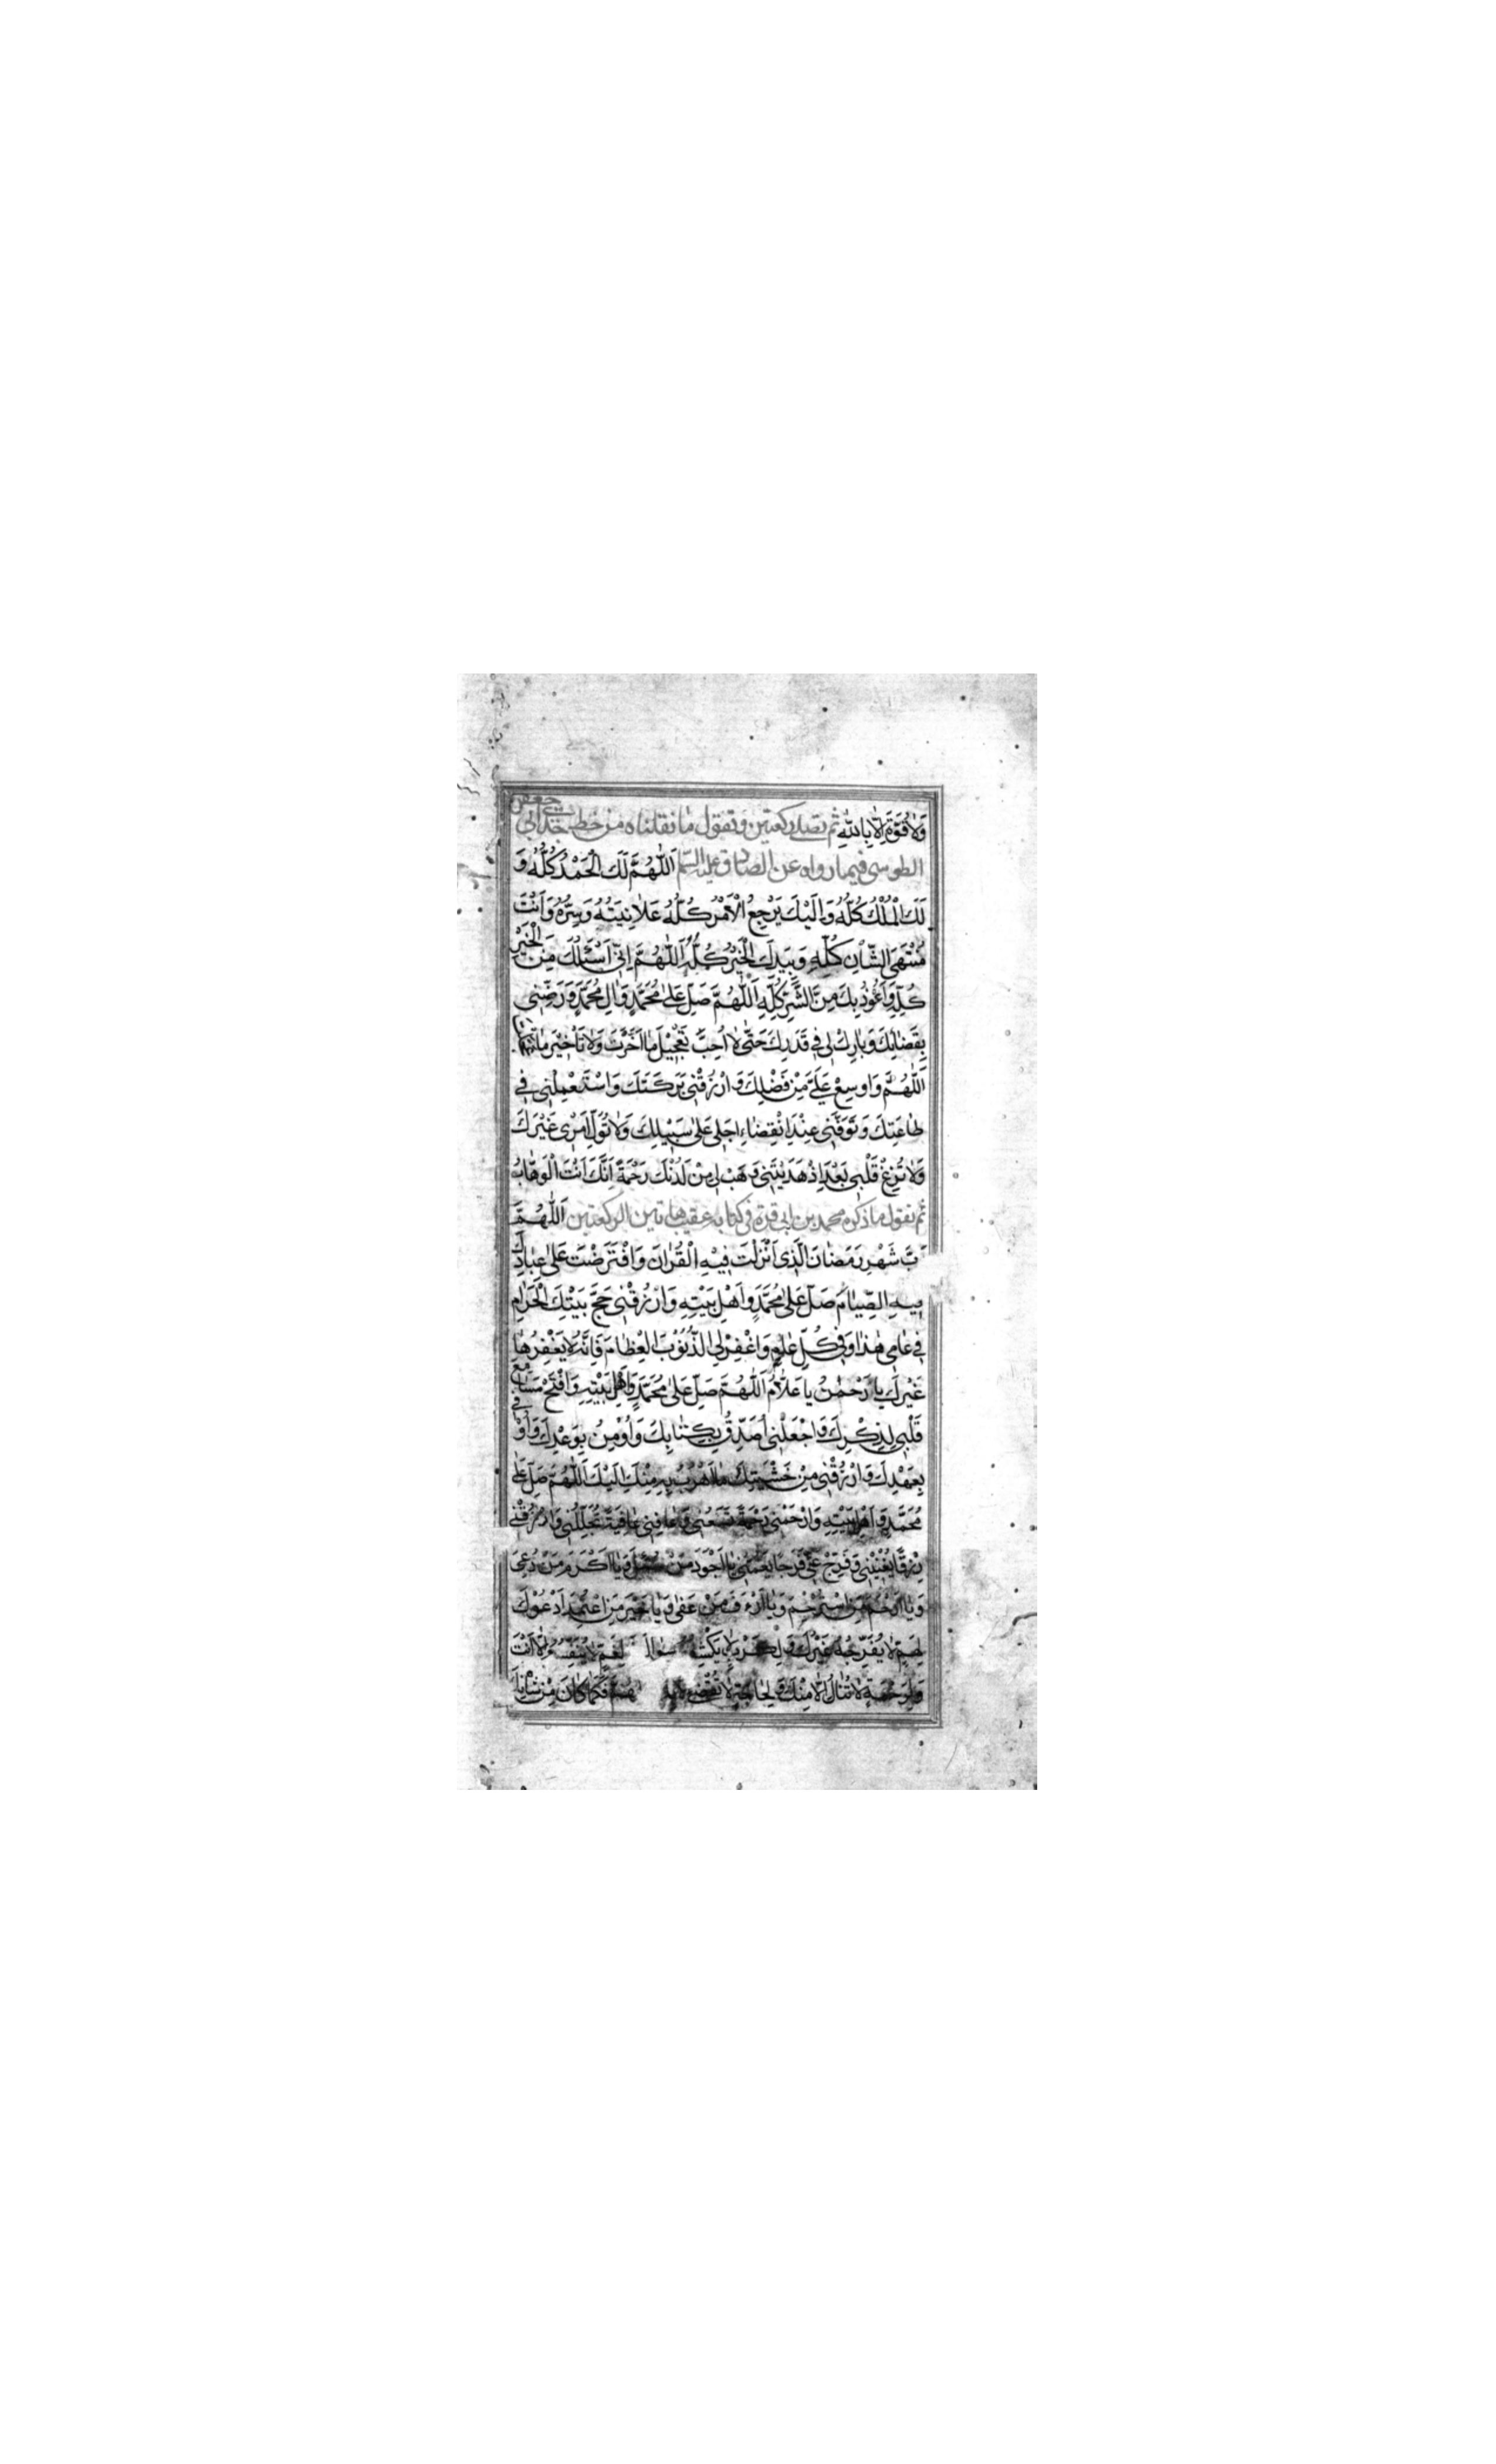 وَلاٰ قُوَّةَ اِلّاٰ بِاللّٰهِ ثم تصلی رکعتین وتقول ما نقلناه من خط جدی ابی جعفر
الطوسی فیما رواه عن الصادق علیه السّلم اَللّٰهُمَّ لَكَ الْحَمْدُ كُلُّهُ وَ
لَكَ الْمُلْكُ كُلُّهُ وَاِلَيْكَ يَرْجِعُ الْاَمْرُ كُلُّهُ عَلاٰنِيَتُهُ وَسِرُّهُ وَاَنْتَ
مُنْتَهَى الشَّاْنِ كُلِّهِ وَبِيَدِكَ الْخَيْرُ كُلُّهُ اَللّٰهُمَّ اِنّٖى اَسْئَلُكَ مِنَ الْخَيْرِ
كُلِّهِ وَاَعُوذُ بِكَ مِنَ الشَّرِّ كُلِّهِ اَللّٰهُمَّ صَلِّ عَلىٰ مُحَمَّدٍ وَاٰلِ مُحَمَّدٍ وَرَضِّنٖى
بِقَضٰائِكَ وَبٰارِكْ لٖى فٖى قَدَرِكَ حَتّٰى لاٰ اُحِبَّ تَعْجٖيلَ مٰا اَخَّرْتَ وَلاٰ تَاْخٖيرَ مٰا
اَللّٰهُمَّ وَاَوْسِعْ عَلَىَّ مِنْ فَضْلِكَ وَارْزُقْنٖى بَرَكَتَكَ وَاسْتَعْمِلْنٖى فٖى
طٰاعَتِكَ وَتَوَفَّنٖى عِنْدَ انْقِضٰاءِ اَجَلٖى عَلىٰ سَبٖيلِكَ وَلاٰ تُوَلِّ اَمْرٖى غَيْرَكَ
وَلاٰ تُزِغْ قَلْبٖى بَعْدَ اِذْ هَدَيْتَنٖى وَهَبْ لٖى مِنْ لَدُنْكَ رَحْمَةً اِنَّكَ اَنْتَ الْوَهّٰابُ
ثم تقول ما ذکره محمد بن ابی قرة فی کتابه عقیب هاتین الرکعتین اَللّٰهُمَّ
رَبَّ شَهْرِ رَمَضٰانَ الَّذٖى اَنْزَلْتَ فٖيهِ الْقُرْاٰنَ وَافْتَرَضْتَ عَلىٰ عِبٰادِكَ
فٖيهِ الصِّيٰامَ صَلِّ عَلىٰ مُحَمَّدٍ وَاَهْلِ بَيْتِهِ وَارْزُقْنٖى حَجَّ بَيْتِكَ الْحَرٰامِ
فٖى عٰامٖى هٰذٰا وَفٖى كُلِّ عٰامٍ وَاغْفِرْ لِىَ الذُّنُوبَ الْعِظٰامَ فَاِنَّهُ لاٰ يَغْفِرُهٰا
غَيْرُكَ يٰا رَحْمٰنُ يٰا عَلّاٰمُ اَللّٰهُمَّ صَلِّ عَلىٰ مُحَمَّدٍ وَاَهْلِ بَيْتِهِ وَافْتَحْ مَسٰامِعَ
قَلْبٖى لِذِكْرِكَ وَاجْعَلْنٖى اُصَدِّقُ بِكِتٰابِكَ وَاُؤْمِنُ بِوَعْدِكَ وَاُوفٖى
بِعَهْدِكَ وَارْزُقْنٖى مِنْ خَشْيَتِكَ مٰا اَهْرُبُ بِهِ مِنْكَ اِلَيْكَ اَللّٰهُمَّ صَلِّ عَلىٰ
مُحَمَّدٍ وَاَهْلِ بَيْتِهِ وَارْحَمْنٖى رَحْمَةً تَسَعُنٖى وَعٰافِنٖى عٰافِيَةً تُجَلِّلُنٖى وَارْزُقْنٖى
رِزْقًا يُغْنٖينٖى وَفَرِّجْ عَنّٖى فَرَجًا يَعُمُّنٖى يٰا اَجْوَدَ مَنْ سُئِلَ وَيٰا اَكْرَمَ مَنْ دُعِىَ
وَيٰا اَرْحَمَ مَنِ اسْتُرْحِمَ وَيٰا اَرْءَفَ مَنْ عَفىٰ وَيٰا خَيْرَ مَنِ اعْتُمِدَ اَدْعُوكَ
لِهَمٍّ لاٰ يُفَرِّجُهُ غَيْرُكَ وَلِكَرْبٍ لاٰ يَكْشِفُهُ سِوٰاكَ لِغَمٍّ لاٰ يُنَفِّسُهُ اِلّاٰ اَنْتَ
وَلِرَحْمَةٍ لاٰ تُنٰالُ اِلّاٰ مِنْكَ وَلِحٰاجَةٍ لاٰ تُقْضٰى اَللّٰهُمَّ فَكَمٰا كٰانَ مِنْ شَاْنِكَ